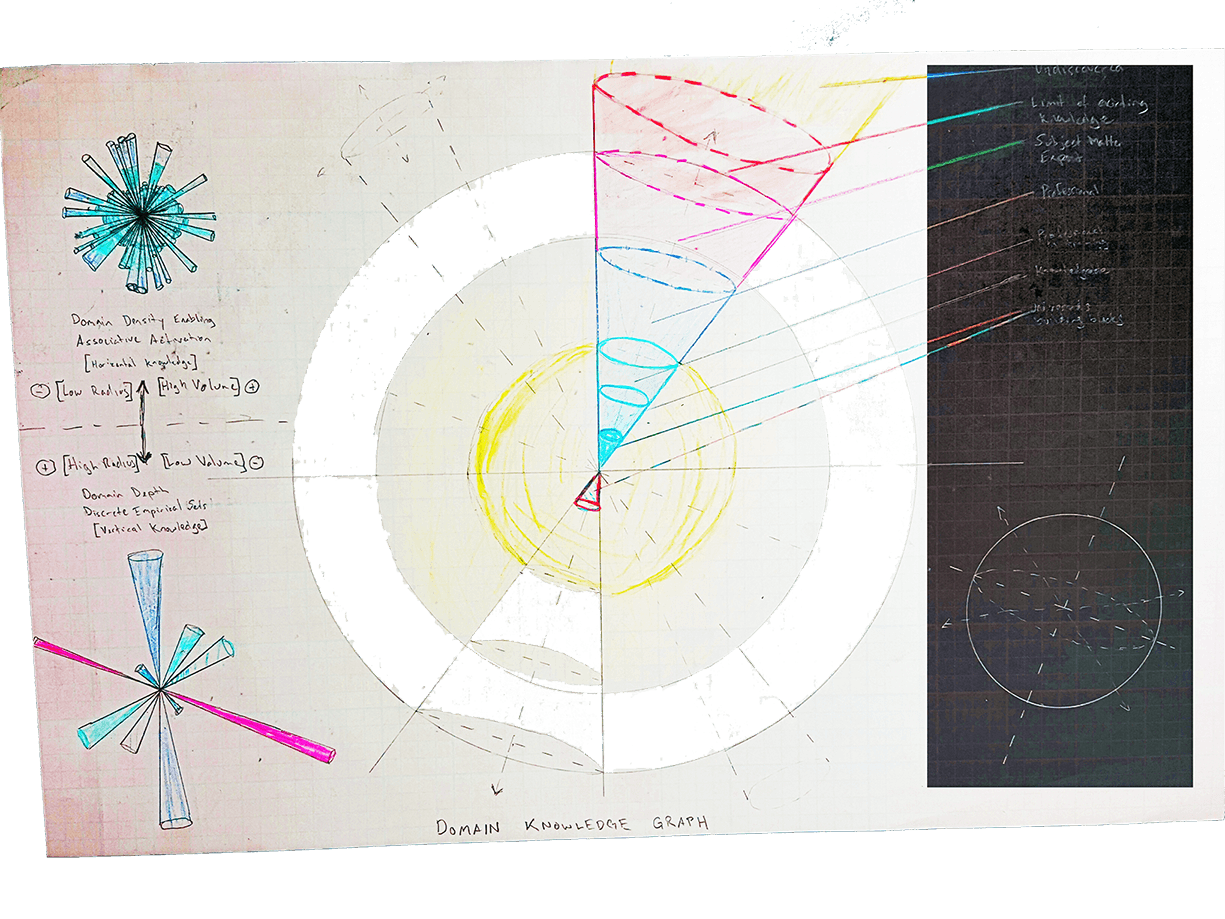 Domain Density Enabling
Associative Activation
[Horizontal Knowledge]
(-) [Low Radius] [High Volume] (+)
(+) [High Radius] [Low Volume] (-)
Domain Depth
Discrete Empirical Sets
[Vertical Knowledge]
Undiscovered
Limit of existing
Knowledge
Subject Matter
Expert
Professional
Knowledgable
Universal
building blocks
DOMAIN KNOWLEDGE GRAPH